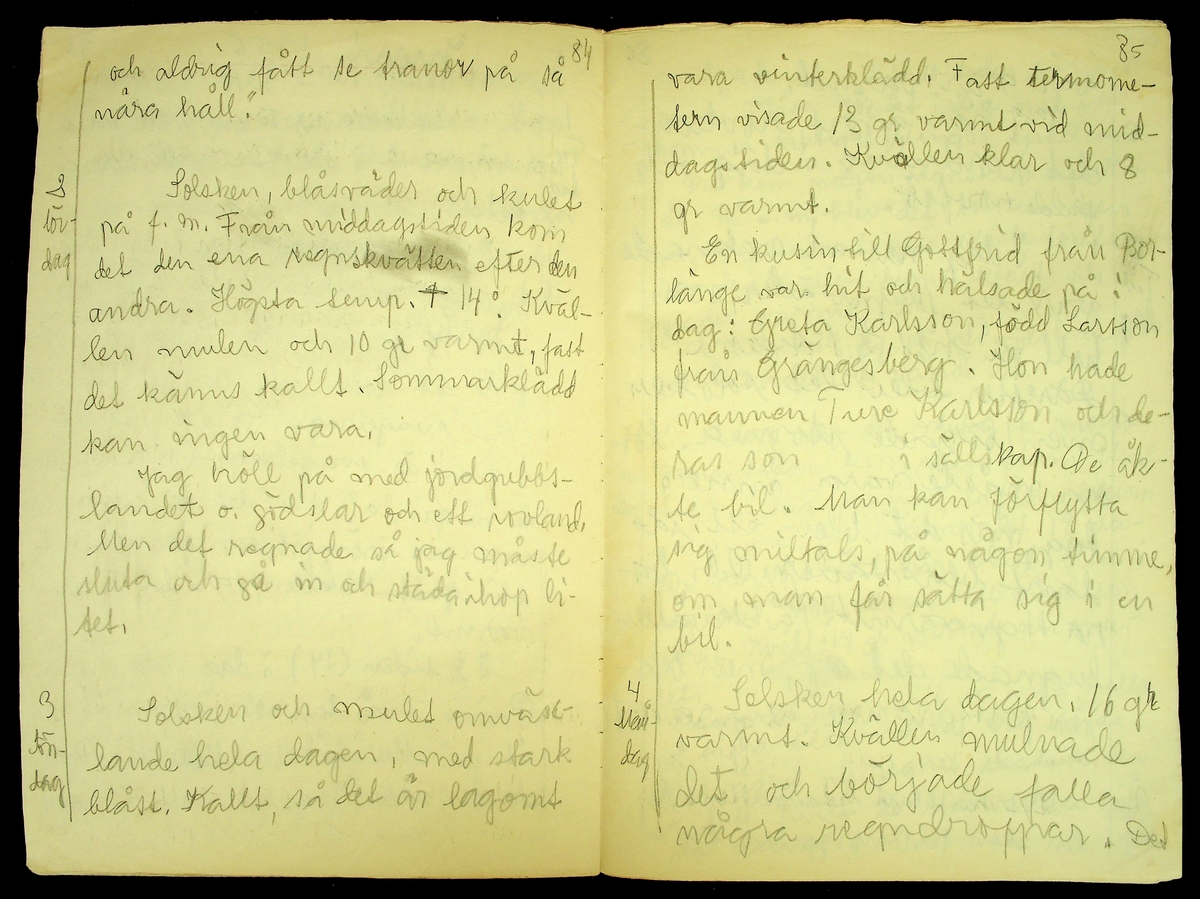 84
och aldrig fått se tranor på så
nära håll."
2
lör-
dag
Solsken, blåsväder och kulet
på f. m. Från middagstiden kom
det den ena regnskvätten efter den
andra. Högsta temp. + 14°. Kväl-
len mulen och 10 gr varmt, fast
det känns kallt. Sommarklädd
kan ingen vara.
Jag höll på med jordgubbs-
landet o. gödslar och ett rovland.
Men det regnade så jag måste
sluta och gå in och städa ihop li-
tet.
3
Sön-
dag
Solsken och mulet omväx-
lande hela dagen, med stark
blåst. Kallt, så det är lagomt
85
vara vinterklädd. Fast termome-
tern visade 13 gr varmt vid mid-
dagstiden. Kvällen klar och 8
gr varmt.
En kusin till Gottfrid från Bor-
länge var hit och hälsade på i
dag: Greta Karlsson, född Larsson
från Grängesberg. Hon hade
mannen Ture Karlsson och de-
ras son i sällskap. De åk-
te bil. Man kan förflytta
sig miltals, på någon timme,
om man får sätta sig i en
bil.
4
Mån-
dag
Solsken hela dagen. 16 gr
varmt. Kvällen mulnade
det och började falla
några regndroppar. Det